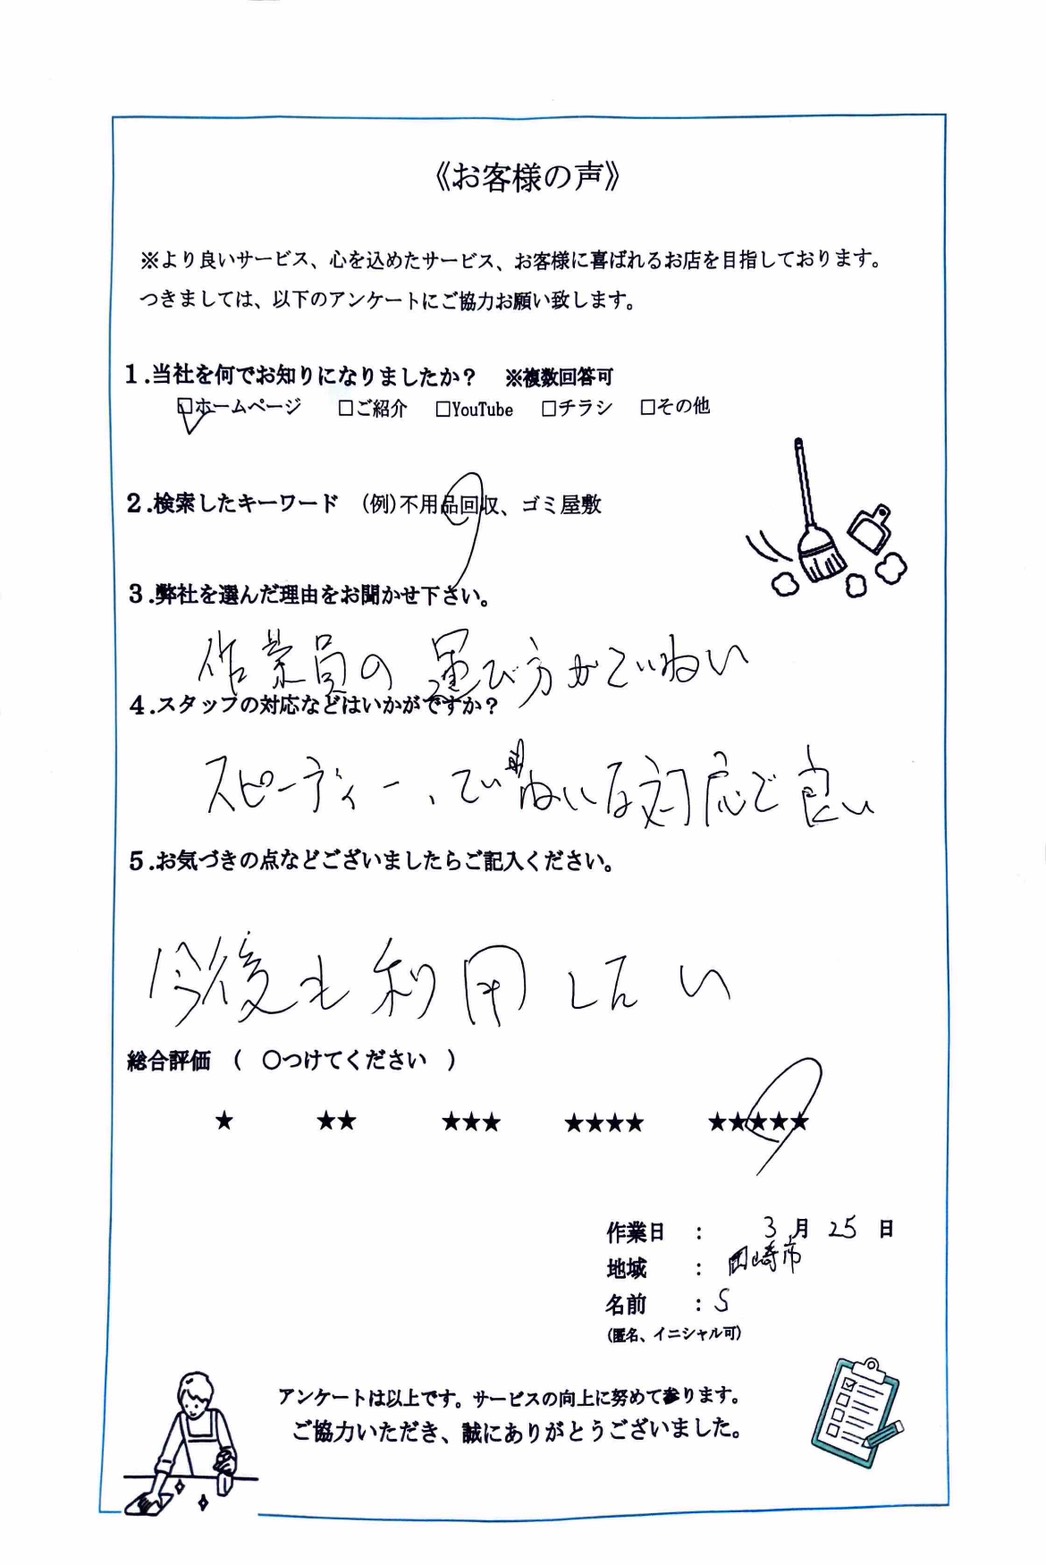 《お客様の声》
※より良いサービス、心を込めたサービス、お客様に喜ばれるお店を目指しております。
つきましては、以下のアンケートにご協力お願い致します。
1.当社を何でお知りになりましたか？ ※複数回答可
☑ホームページ □ご紹介 □YouTube □チラシ □その他
2.検索したキーワード (例)不用品回収、ゴミ屋敷
3.弊社を選んだ理由をお聞かせ下さい。
作業員の運び方がていねい
4.スタッフの対応などはいかがですか？
スピーディー、ていねいな対応で良い
5.お気づきの点などございましたらご記入ください。
今後も利用したい
総合評価 ( ○つけてください )
★ ★★ ★★★ ★★★★ ★★★★★
作業日 : 3月25日
地域 : 岡崎市
名前 : S
(匿名、イニシャル可)
アンケートは以上です。サービスの向上に努めて参ります。
ご協力いただき、誠にありがとうございました。